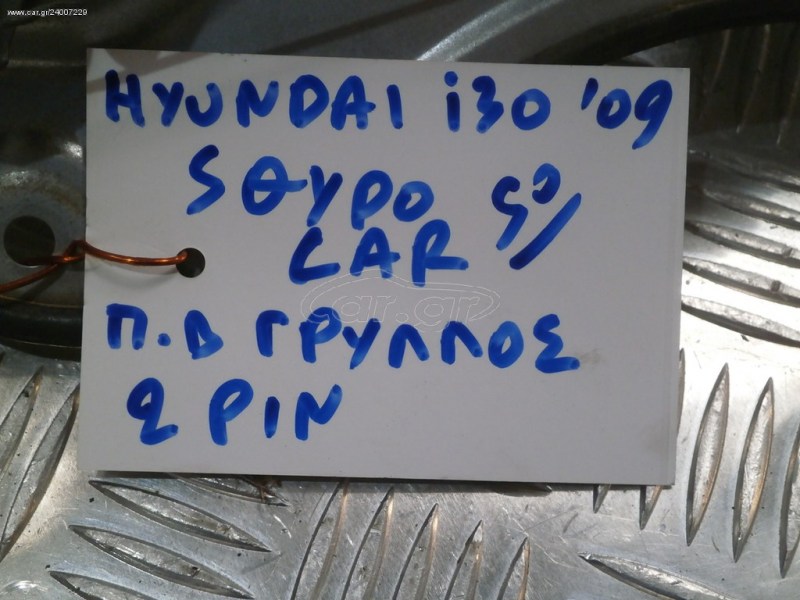 www.car.gr/24007229
HYUNDAI i30 '09
5ΘΥΡΟ
CAR
car.gr
Π.Δ ΓΡΥΛΛΟΣ
2 PIN